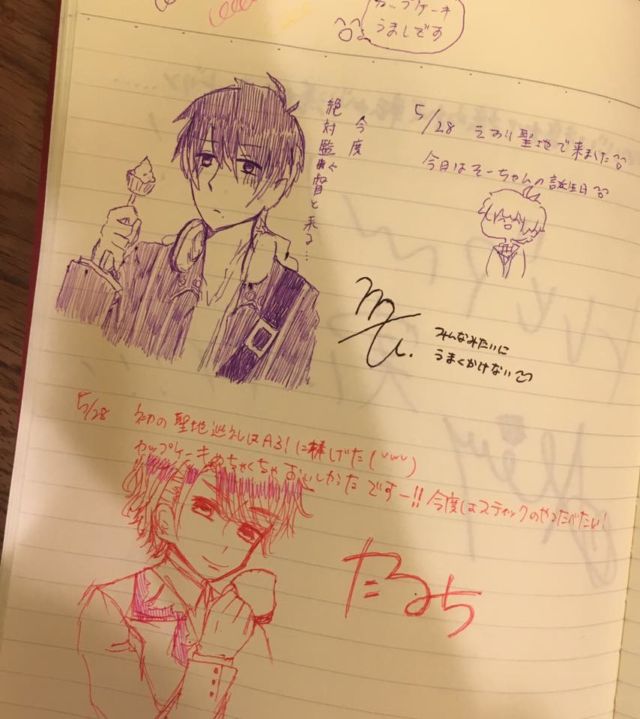 カップケーキ
うましです
今度
絶対監督と来る…
5/28
聖地で来ました
今日は
ちゃんの誕生日
みんなみたいに
うまくかけない
5/28 初の聖地巡礼はA3!に捧げた(
カップケーキめちゃくちゃおいしかったですー!!今度はスティックのやつたべたい!
たるち